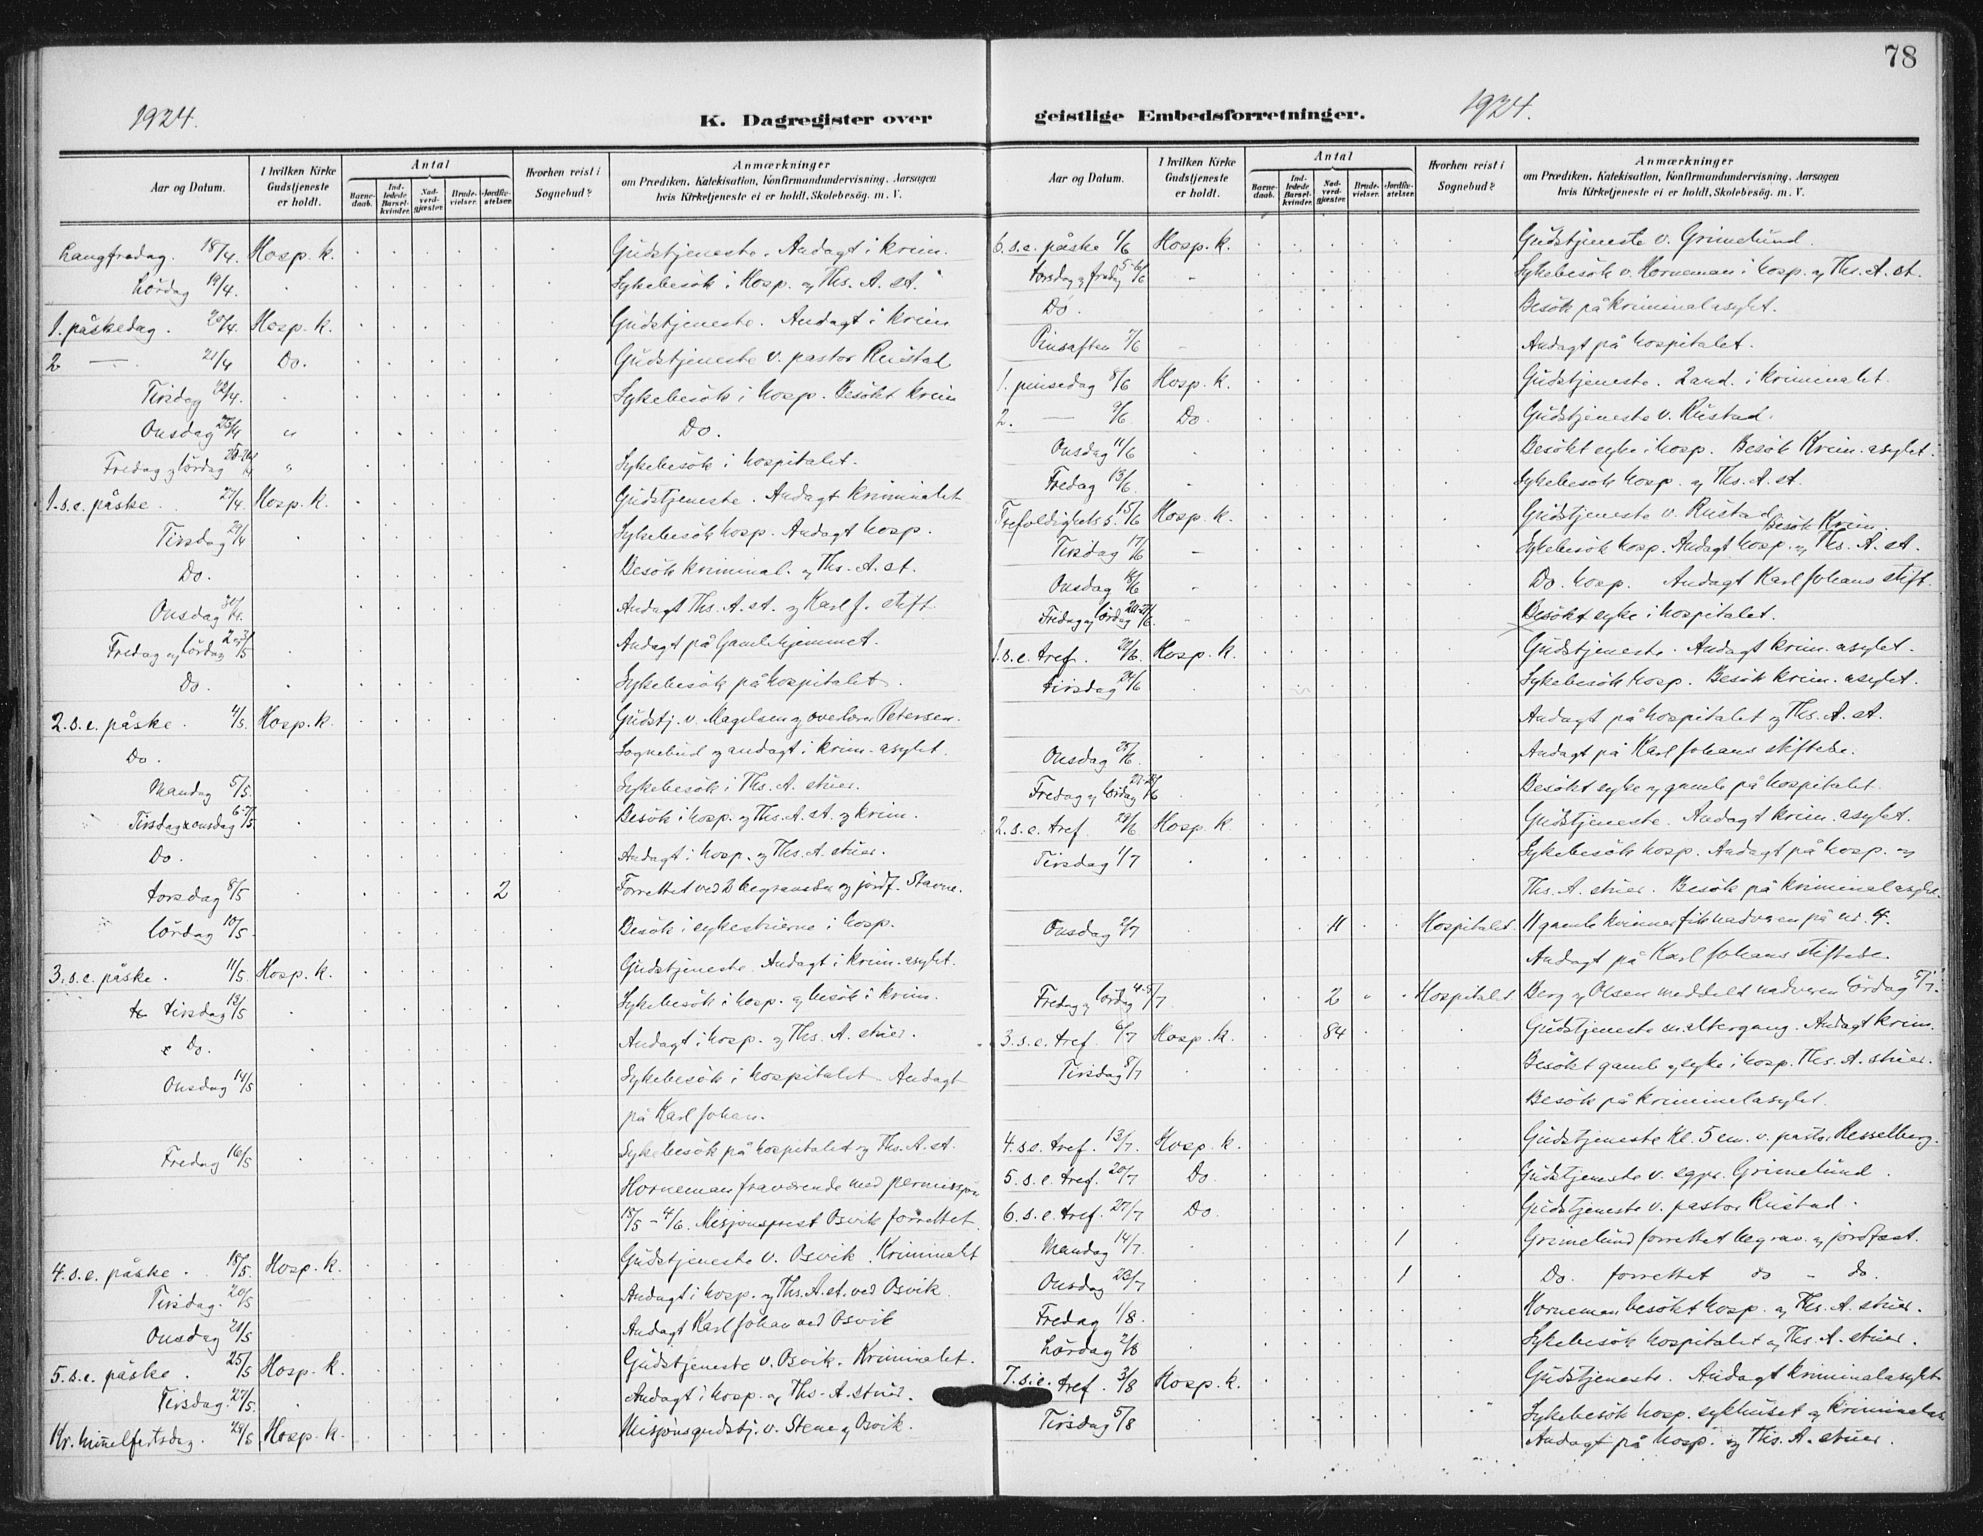 78
1924.
K. Dagregister over
Aar og Datum.
I hvilken Kirke Gudstjeneste er holdt.
Antal
Barne-daab.
Ind-ledede Barsel-kvinder.
Nad-verd-gjæster.
Brude-vielser.
Jordfæ-stelser.
Hvorhen reist i Sognebud?
Anmærkninger
om Prædiken, Katekisation, Konfirmandundervisning. Aarsagen
hvis Kirketjeneste ei er holdt, Skolebesög. m. V.
Langfredag. 18/4. Hosp. k. Gudstjeneste. Andagt i krim.
Lördag 19/4. Sykebesök i Hosp. og Ths. A. st.
1. påskedag. 20/4. Hosp. k. Gudstjeneste. Andagt i krim
2 — 21/4 Do. Gudstjeneste v. pastor Rustad
Tirsdag 22/4. Sykebesök i hosp. Besökt krim
Onsdag 23/4 " Do.
Fredag og lördag 25-26/4 " Sykebesök i hospitalet.
1. s. e. påske. 27/4 Hosp. k. Gudstjeneste. Andagt kriminalet
Tirsdag 29/4 Sykebesök hosp. Andagt hosp.
Do. Besök kriminal. og Ths. A. st.
Onsdag 30/4. Andagt Ths. A. st. og Karl J. stift.
Fredag og lördag 2-3/5 Andagt på Gamlehjemmet.
Do. Sykebesök på hospitalet.
2. s. e. påske. 4/5. Hosp. k. Gudstj. v. Magelsen og overlærer Petersen.
Do. Sognebud og andagt i krim. asylet.
Mandag 5/5. Sykebesök i Ths. A. stuer.
Tirsdag x onsdag 6-7/5 Besök i hosp. og Ths. A. st. og krim.
Do. Andagt i hosp. og Ths. A. stuer.
torsdag 8/5 2 Forrettet ved 2 begravelser og jordf. Stavne.
lördag 10/5. Besök i sykestuerne i hosp.
3. s. e. påske. 11/5 Hosp. k. Gudstjeneste. Andagt i krim. asylet.
tirsdag 13/5 Sykebesök i hosp. og besök i krim.
Do. Andagt i hosp. og Ths. A. stuer.
Onsdag 14/5 Sykebesök i hospitalet. Andagt
på Karl Johan.
Fredag 16/5 Sykebesök på hospitalet og Ths. A. st.
Horneman fraværende med permissjon
18/5 – 4/6. Misjonsprest Osvik forrettet.
4. s. e. påske. 18/5. Hosp. k. Gudstjeneste v. Osvik. Kriminalet
Tirsdag. 20/5 Andagt i hosp. og Ths. A. st. ved Osvik.
Onsdag 21/5 Andagt Karl Johan ved Osvik
5. s. e. påske. 25/5 Hosp. k. Gudstjeneste v. Osvik. Kriminalet.
Tirsdag. 27/5. Andagt i hosp. og Ths. A. stuer.
Kr. himmelfartsdag. 29/5 Hosp. k. Misjonsgudstj. v. Stene og Osvik.
geistlige Embedsforretninger.
1924.
Aar og Datum.
I hvilken Kirke Gudstjeneste er holdt.
Antal
Barne-daab.
Ind-ledede Barsel-kvinder.
Nad-verd-gjæster.
Brude-vielser.
Jordfæ-stelser.
Hvorhen reist i Sognebud?
Anmærkninger
om Prædiken, Katekisation, Konfirmandundervisning, Aarsagen
hvis Kirketjeneste ei er holdt, Skolebesög. m. V.
6. s. e. påske 1/6 Hosp. k. Gudstjeneste v. Grimelund.
Torsdag og fredag 5-6/6 Sykebesök v. Horneman i hosp. og Ths. A. st.
Do. Besök på kriminalasylet.
Pinsaften 7/6 Andagt på hospitalet.
1. pinsedag 8/6 Hosp. k. Gudstjeneste. 2 and. i kriminalet.
2. — 9/6. Do. Gudstjeneste v. Rustad.
Onsdag 11/6 Besökt syke i hosp. Besök Krim. asylet.
Fredag 13/6. Sykebesök hosp. og Ths. A. st.
Trefoldighets s. 15/6 Hosp. k. Gudstjeneste v. Rustad
Besök Krim.
Tirsdag 17/6 Sykebesök hosp. Andagt hosp. og Ths. A. st.
Onsdag 18/6 Do. hosp. Andagt Karl Johans stift.
Fredag og lördag 20-21/6 Besökt syke i hospitalet.
1. s. e. tref. 22/6. Hosp. k. Gudstjeneste. Andagt krim. asylet.
tirsdag 24/6 Sykebesök hosp. Besök krim. asylet.
Andagt på hospitalet og Ths. A. st.
Onsdag 25/6 Andagt på Karl Johans stiftelse.
Fredag og lördag 27-28/6 Besökt syke og gamle på hospitalet.
2. s. e. tref. 29/6 Hosp. k. Gudstjeneste. Andagt krim. asylet.
Tirsdag 1/7 Sykebesök hosp. Andagt på hosp. og
Ths. A. stuer. Besök på kriminalasylet.
Onsdag 2/7 11 Hospitalet. 11 gamle kvinner fik nadveren på nr. 4.
Andagt på Karl Johans stiftelse.
Fredag og lördag 4-5/7 2 Hospitalet Berg og Olsen meddelt nadveren lördag 5/7.
3. s. e. tref. 6/7 Hosp. k. 84 Gudstjeneste m. altergang. Andagt krim.
Tirsdag 8/7 Besökt gamle og syke i hosp. Ths. A. stuer.
Besök på kriminalasylet.
4. s. e. tref. 13/7. Hosp. k. Gudstjeneste kl. 5 em. v. pastor Hesselberg.
5. s. e. tref. 20/7 Do. Gudstjeneste v. sgpr. Grimelund.
6. s. e. tref. 27/7 Do. Gudstjeneste v. pastor Rustad.
Mandag 14/7. 1 Grimelund forrettet begrav. og jordfæst.
Onsdag 23/7 1 Do. forrettet do - do.
Fredag 1/8. Horneman besökt hosp. og Ths. A. stuer.
Lördag 2/8 Sykebesök hospitalet og Ths. A. stuer.
7. s. e. tref. 3/8 Hosp. k. Gudstjeneste. Andagt kriminalasylet
Tirsdag 5/8 Sykebesök hosp. sykhuset og kriminalas.
Andagt på hosp. og Ths. A. stuer.